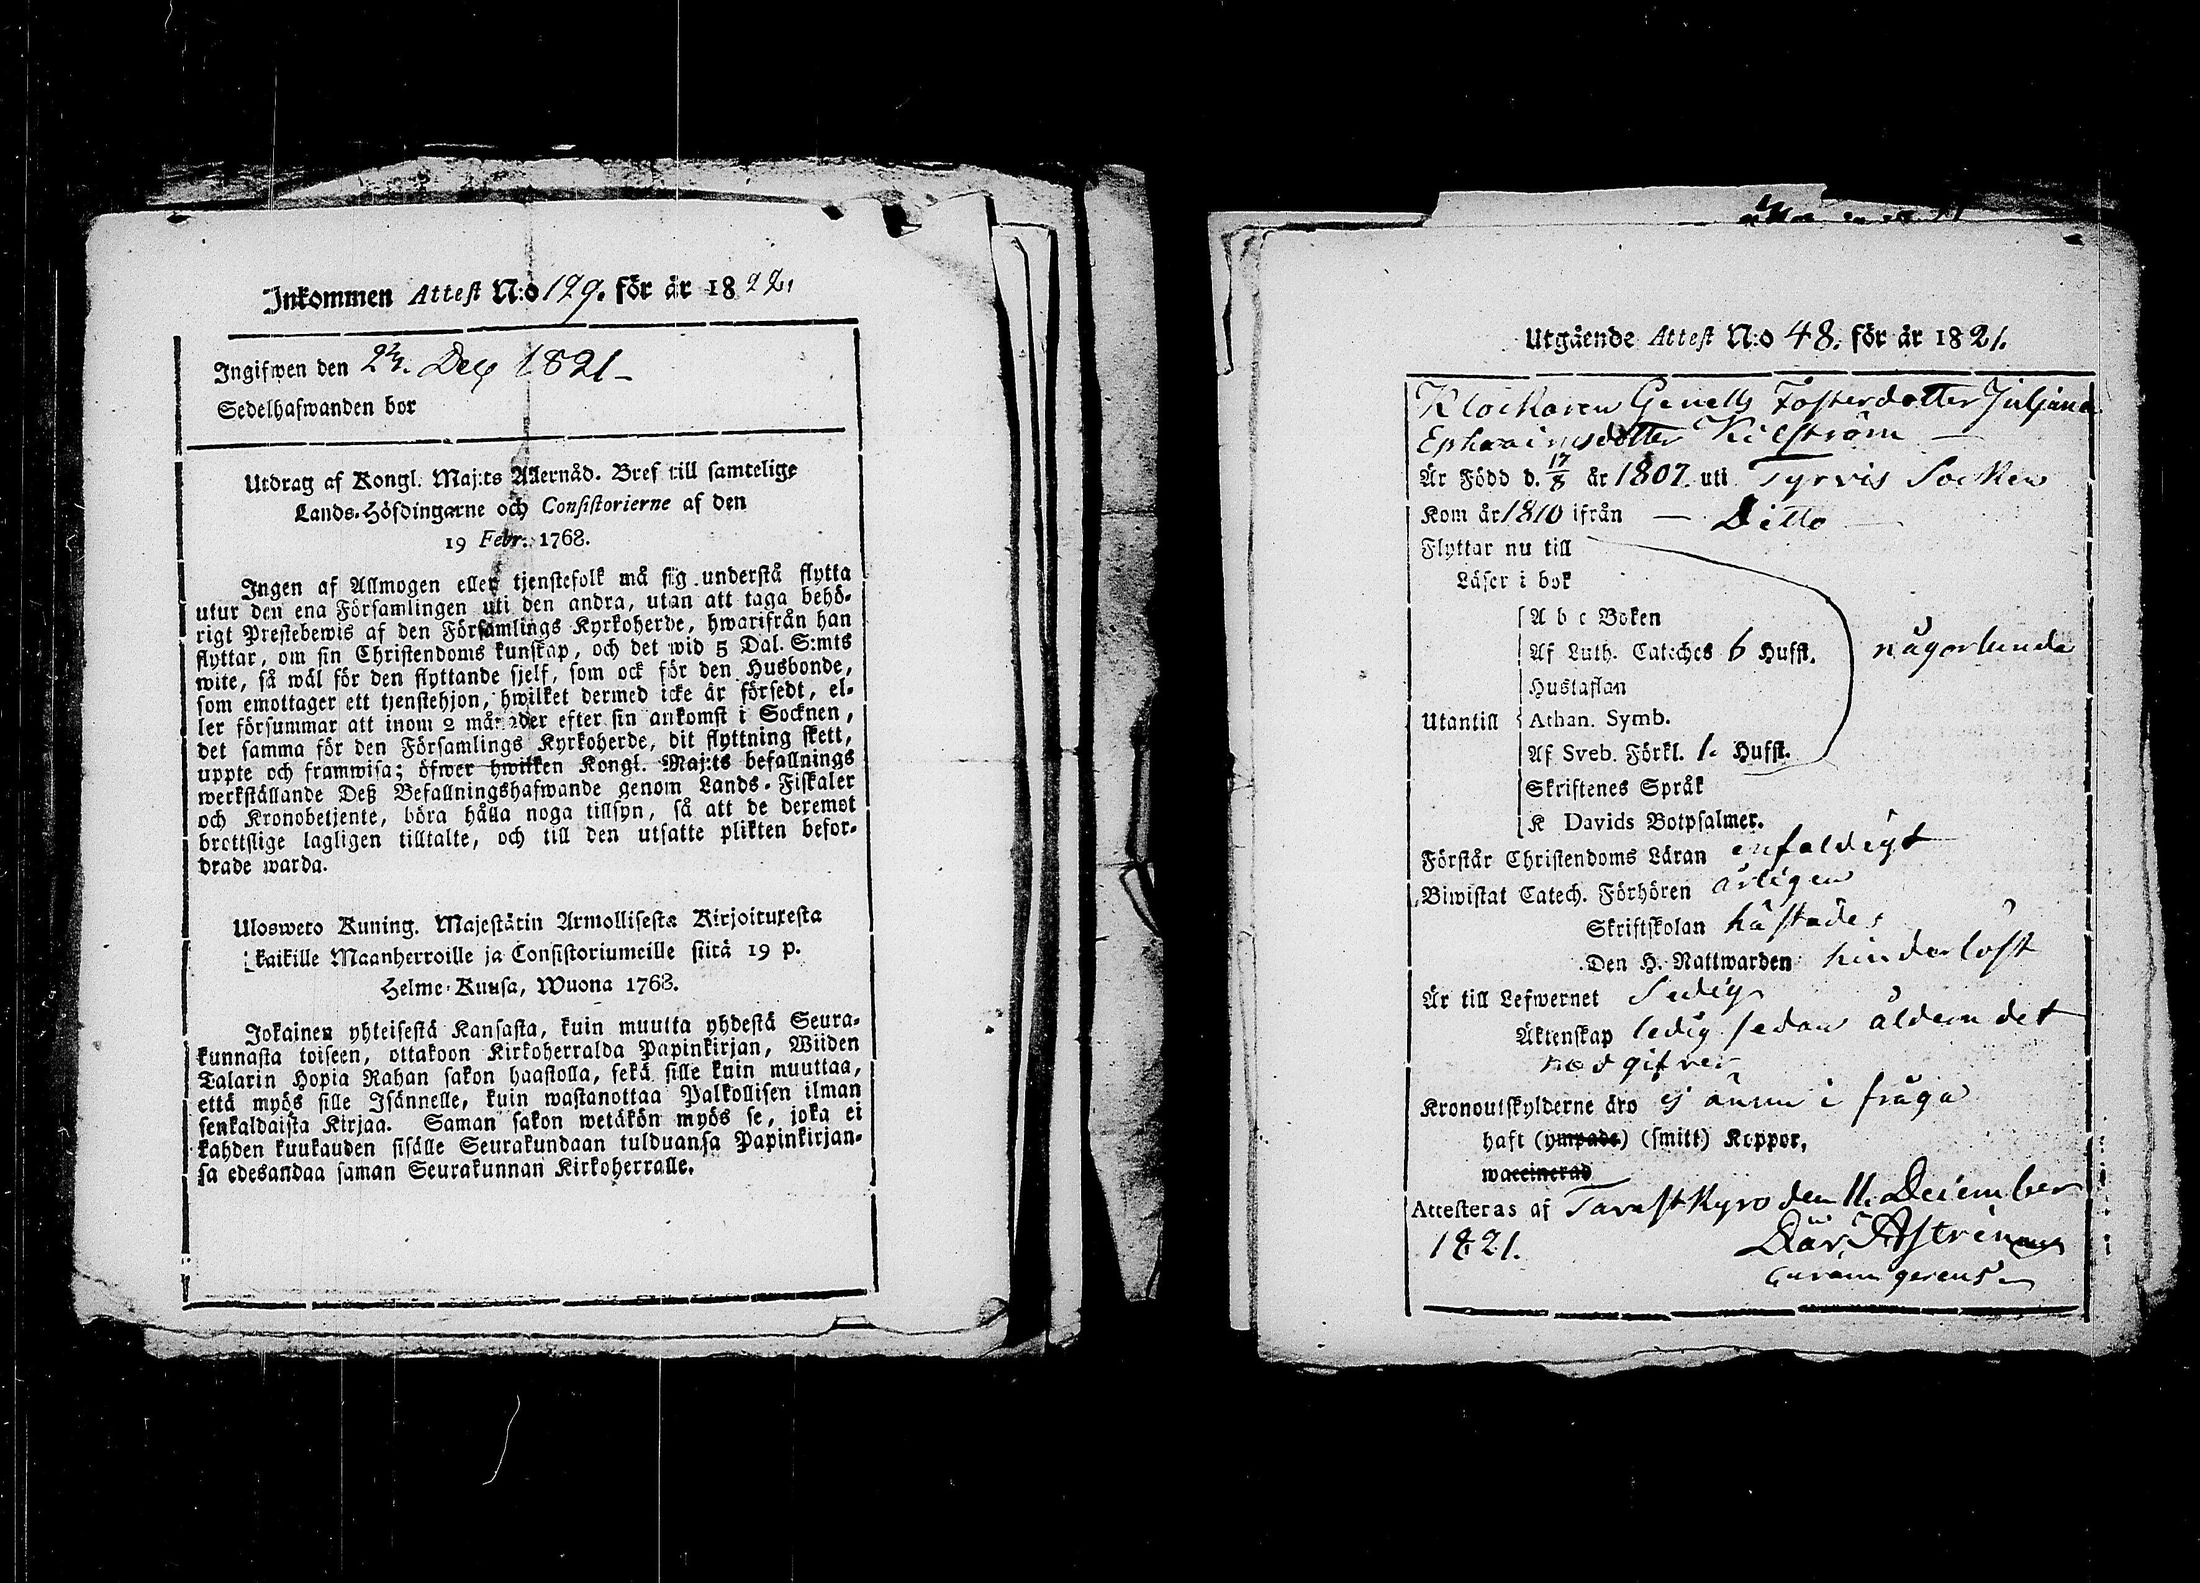 Inkommen Attest N:o 129. för år 1822.
Ingifwen den 27. Dec 1821
Sedelhafwanden bor
Utdrag af Kongl. Maj:ts Allernåd. Bref till samtelige
Lands-Höfdingarne och Consistorierne af den
19 Febr. 1768.
Ingen af Allmogen eller tjenstefolk må sig understå flytta
utur den ena Församlingen uti den andra, utan att taga behö-
rigt Prestebewis af den Församlings Kyrkoherde, hwarifrån han
flyttar, om sin Christendoms kunskap, och det wid 5 Dal. S:mts
wite, så wäl för den flyttande sjelf, som ock för den Husbonde,
som emottager ett tjenstehjon, hwilket dermed icke är försedt, el-
ler försummar att inom 2 månader efter sin ankomst i Socknen,
det samma för den Församlings Kyrkoherde, dit flyttning skett,
uppte och framwisa; öfwer hwilken Kongl. Maj:ts befallnings
werkställande Deß Befallningshafwande genom Lands-Fiskaler
och Kronobetjente, böra hålla noga tillsyn, så att de deremot
brottslige lagligen tilltalte, och till den utsatte plikten befor-
drade warda.
Ulosweto Kuning. Majestätin Armollisesta Kirjoituxesta
kaikille Maanherroille ja Consistoriumeille siitä 19 p.
Helme-Kuusa, Wuona 1768.
Jokainen yhteisestä Kansasta, kuin muutta yhdestä Seura-
kunnasta toiseen, ottakoon Kirkoherralda Papinkirjan, Wiiden
Talarin Hopia Rahan sakon haastolla, sekä sille kuin muuttaa,
että myös sille Isännelle, kuin wastanottaa Palkollisen ilman
senkaldaista Kirjaa. Saman sakon wetäkön myös se, joka ei
kahden kuukauden sisälle Seurakundaan tulduansa Papinkirjan-
sa edesandaa saman Seurakunnan Kirkoherralle.
Utgående Attest N:o 48. för år 1821.
Klockaren Genells Fosterdotter Juljana
Ephraimsdotter Kilström
Är Född d. 17/8 år 1807. uti Tyrvis Socken
Kom år 1810 ifrån — Ditto —
Flyttar nu till
Läser i bok
A b c Boken
Af Luth. Cateches 6 Hufst. någorlunda
Hustaflan
Utantill Athan. Symb.
Af Sveb. Förkl. 1. Hufst.
Skriftenes Språk
K Davids Botpsalmer.
Förstår Christendoms Läran enfaldigt
Biwistat Catech. Förhören årligen
Skriftskolan håstädes
Den H. Nattwarden hinderlöst
Är till Lefwernet Sedig
Äktenskap ledig sedan åldern det
medgifver
Kronoutskylderne äro ej ännu i fråga
haft (ympade) (smitt) Koppor,
waccinerad
Attesteras af Tavastkyro den 11. December
1821. Astrenius
curam gerens